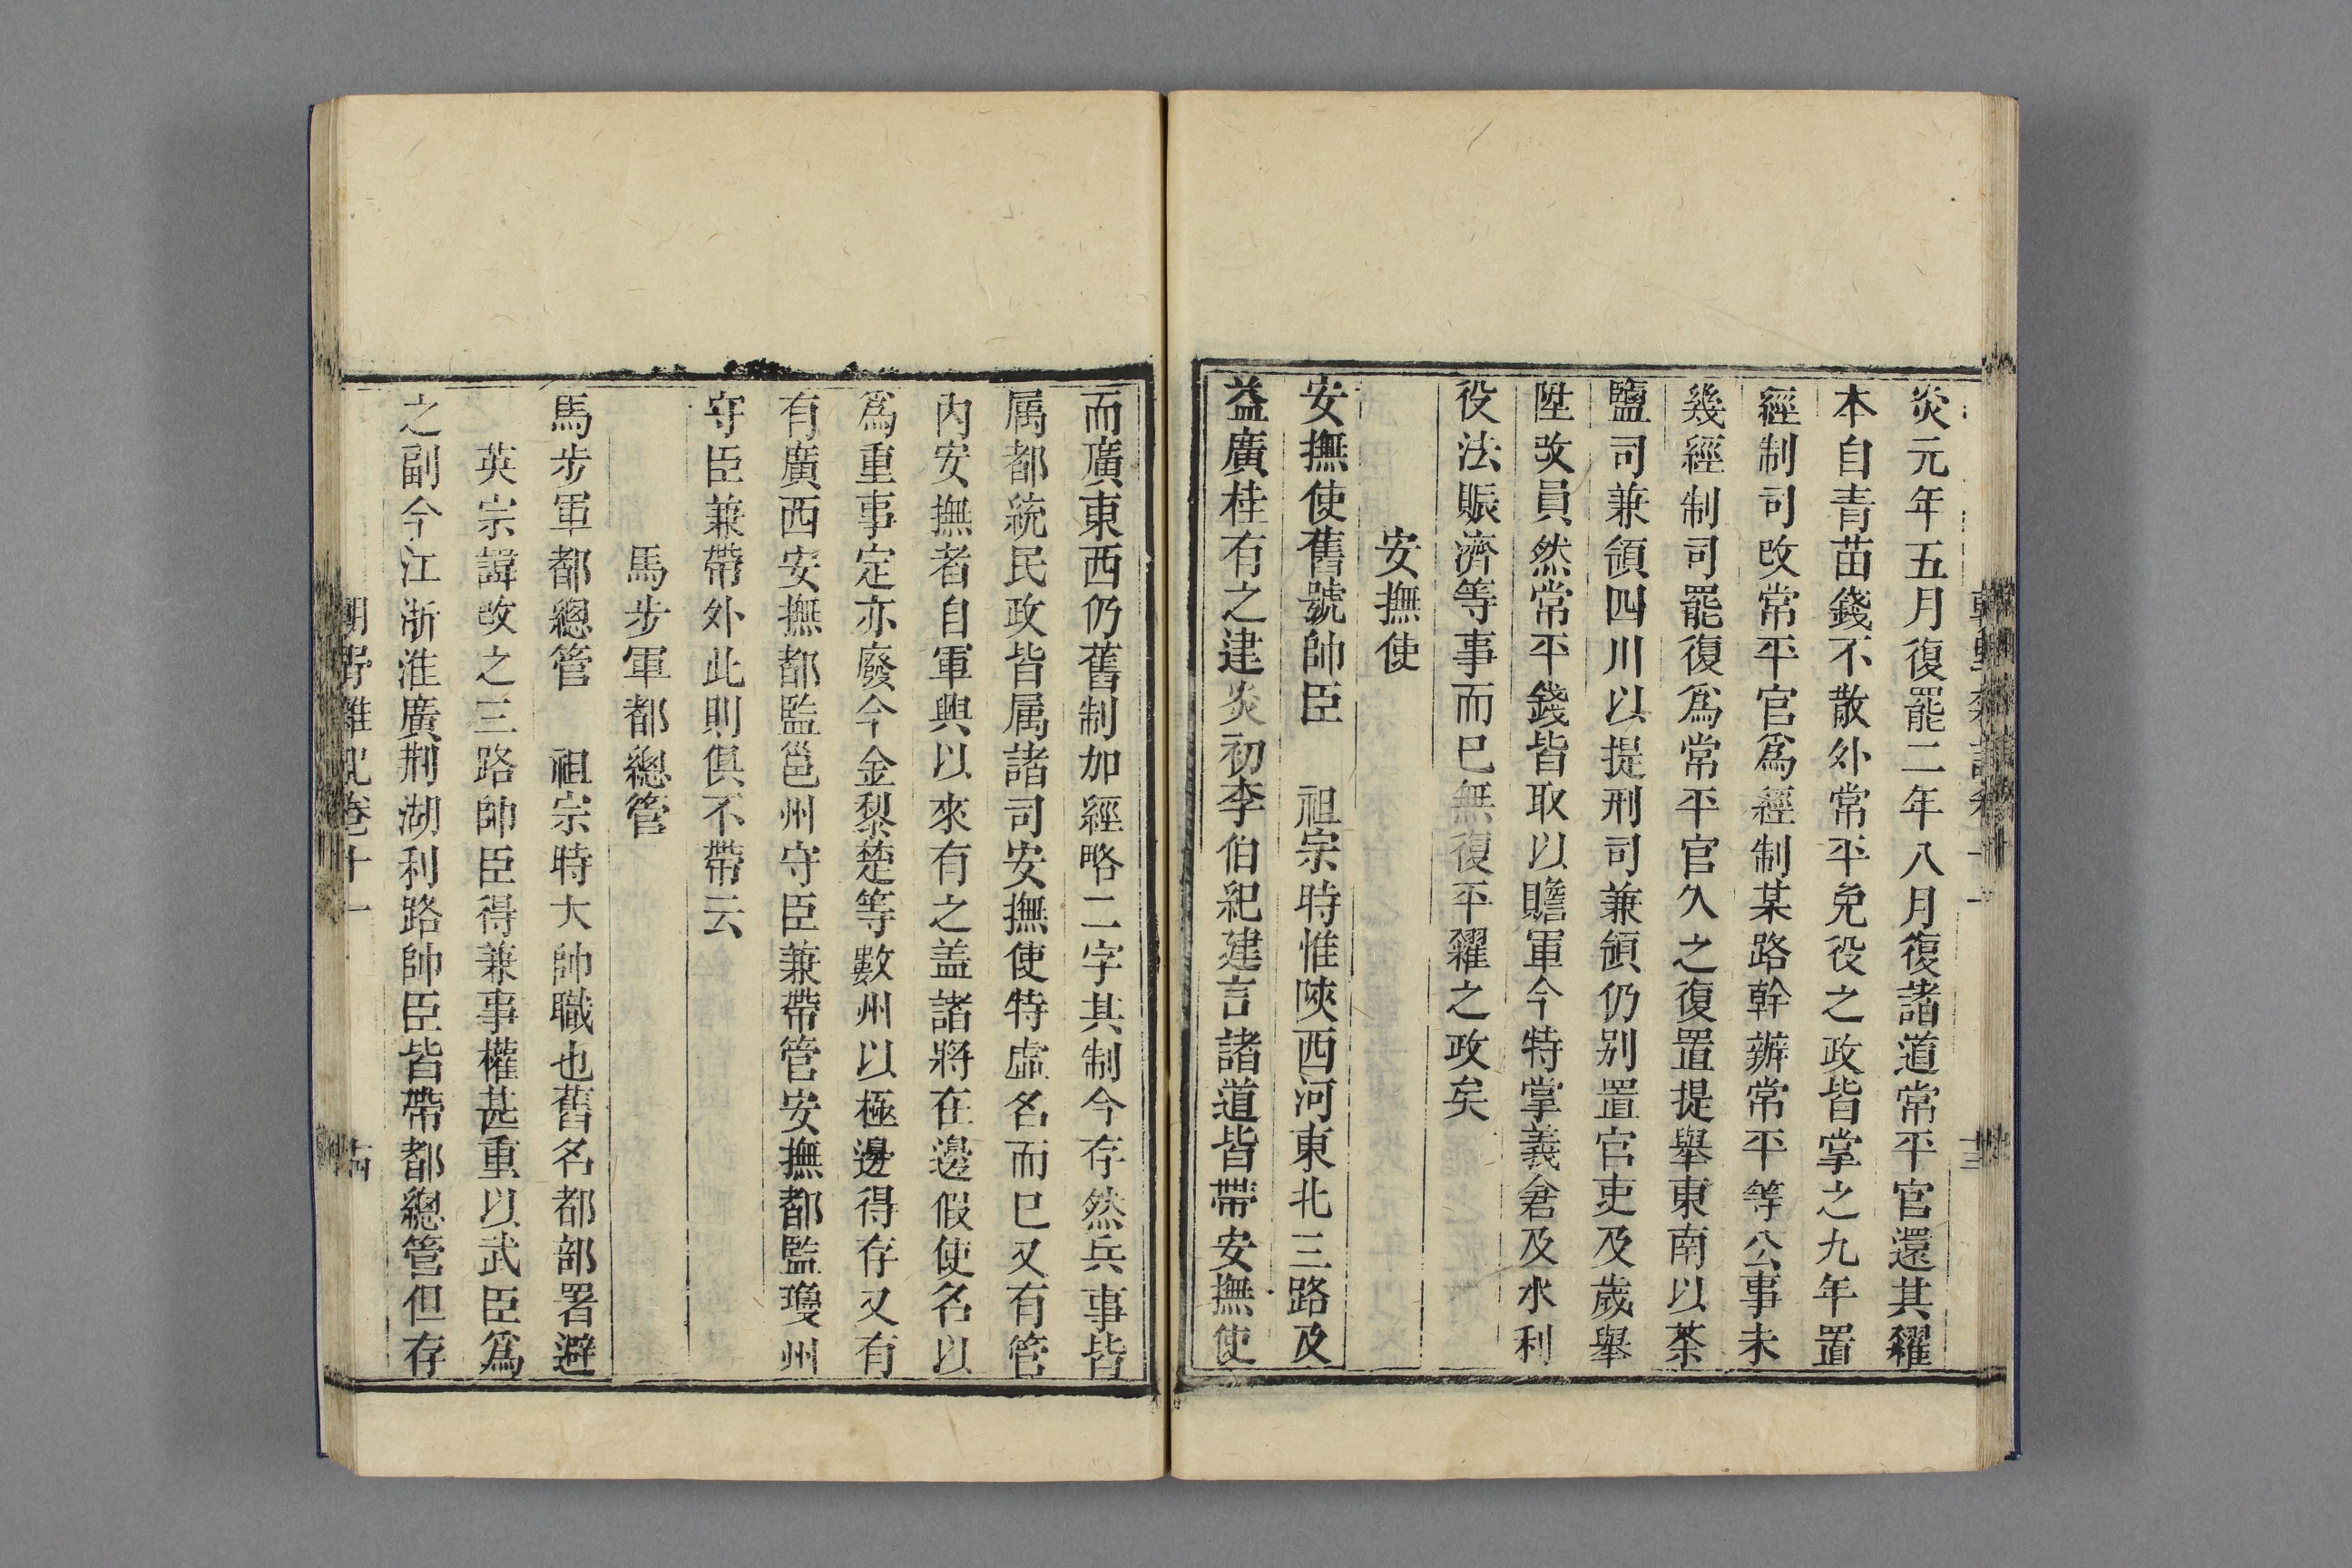 炎元年五月復罷二年八月復諸道常平官還其糴
本自青苗錢不散外常平免役之政皆掌之九年置
經制司改常平官爲經制某路幹辦常平等公事未
幾經制司罷復爲常平官久之復置提舉東南以茶
鹽司兼領四川以提刑司兼領仍别置官吏及歲舉
陞改員然常平錢皆取以贍軍今特掌義倉及水利
役法賑濟等事而巳無復平糴之政矣
安撫使
安撫使舊號帥臣 祖宗時惟陜西河東北三路及
益廣桂有之建炎初李伯紀建言諸道皆帶安撫使
而廣東西仍舊制加經略二字其制今存然兵事皆
属都統民政皆属諸司安撫使特虚名而巳又有管
内安撫者自軍興以來有之盖諸將在邊假使名以
爲重事定亦廢今金黎楚等數州以極邊得存又有
有廣西安撫都監邕州守臣兼帶管安撫都監瓊州
守臣兼帶外此則俱不帶云
馬步軍都總管
馬步軍都總管 祖宗時大帥職也舊名都部署避
英宗諱改之三路帥臣得兼事權甚重以武臣爲
之副今江浙淮廣荆湖利路帥臣皆帶都總管但存
朝野雜記卷十一 十四